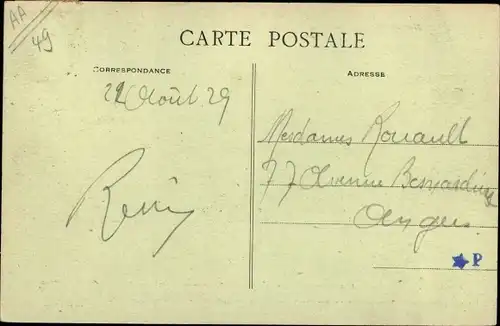 AA
49
CARTE POSTALE
CORRESPONDANCE
ADRESSE
22 Août 29
Mesdames Rouault
77 Avenue Bessonneau
Angers
P